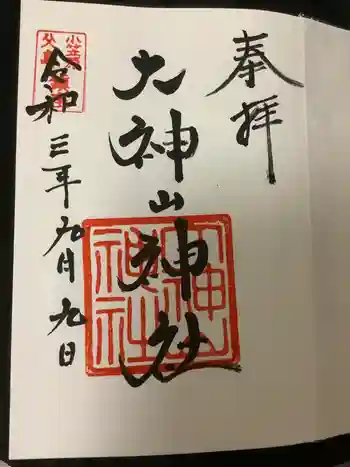 奉拝
大神山神社
令和三年九月九日
小笠原
父島
大神山神社